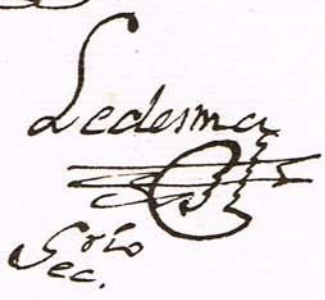 Ledesma
Srio
Sec.